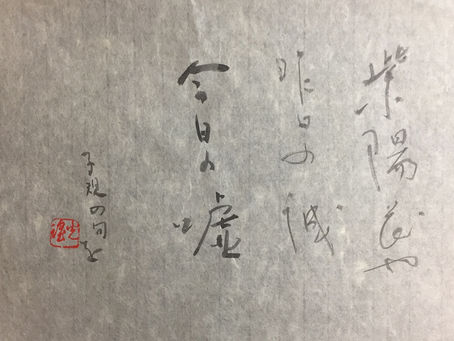 紫陽花や
昨日の誠
今日の嘘
子規の句を